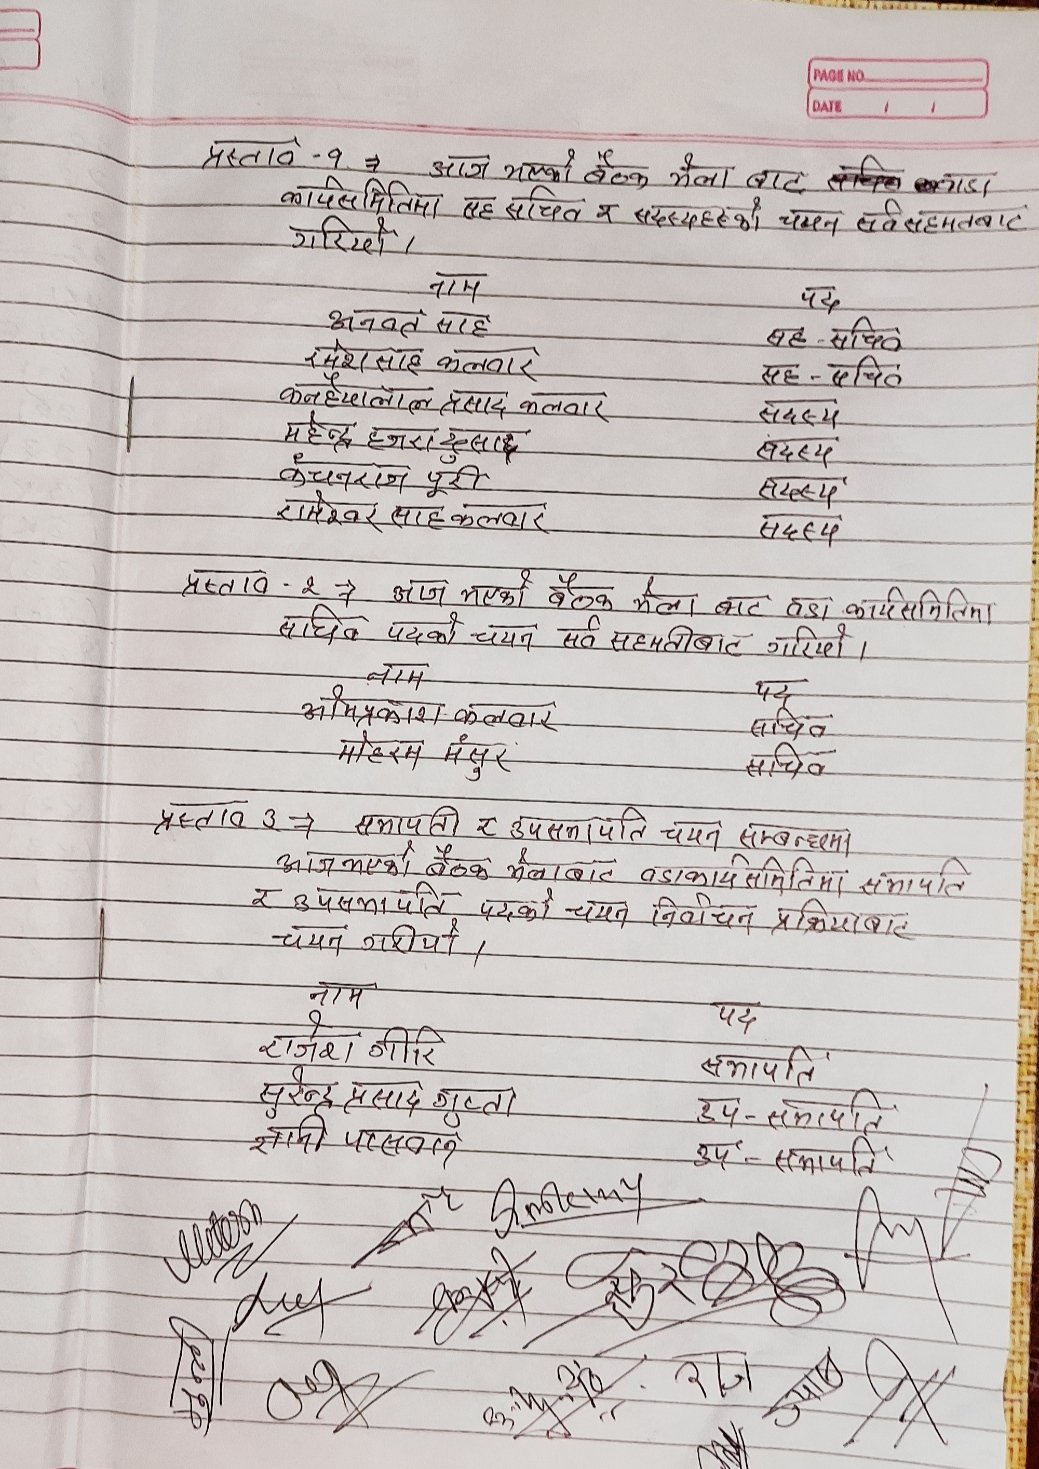 PAGE NO.
DATE / /
प्रस्ताव - १ ⇒ आज भएको बैठक भेला बाट वाडा
कार्यसमितिमा सह सचिव र सदस्यहरुको चयन सर्वसहमतबाट
गरियो।
नाम पद
अनवत साह सह - सचिव
रमेश साह कलवार सह - सचिव
कन्हैयालाल प्रसाद कलवार सदस्य
महेन्द्र हजरा सदस्य
कंचनराज पूरी सदस्य
रामेश्वर साह कलवार सदस्य
प्रस्ताव - २ ⇒ आज भएको बैठक भेला बाट वडा कार्यसमितिमा
सचिव पदको चयन सर्व सहमतीबाट गरियो।
नाम पद
ओमप्रकाश कलवार सचिव
मोहरम मंसुर सचिव
प्रस्ताव ३ ⇒ सभापती र उपसभापति चयन सम्बन्धमा
आज भएको बैठक भेलाबाट वडाकार्यसमितिमा सभापति
र उपसभापति पदको चयन निर्वाचन प्रक्रियाबाट
चयन गरीयो।
नाम पद
राजेश गीरि सभापति
सुरेन्द्र प्रसाद गुप्ता उप - सभापति
पासवान उप - सभापति
राज